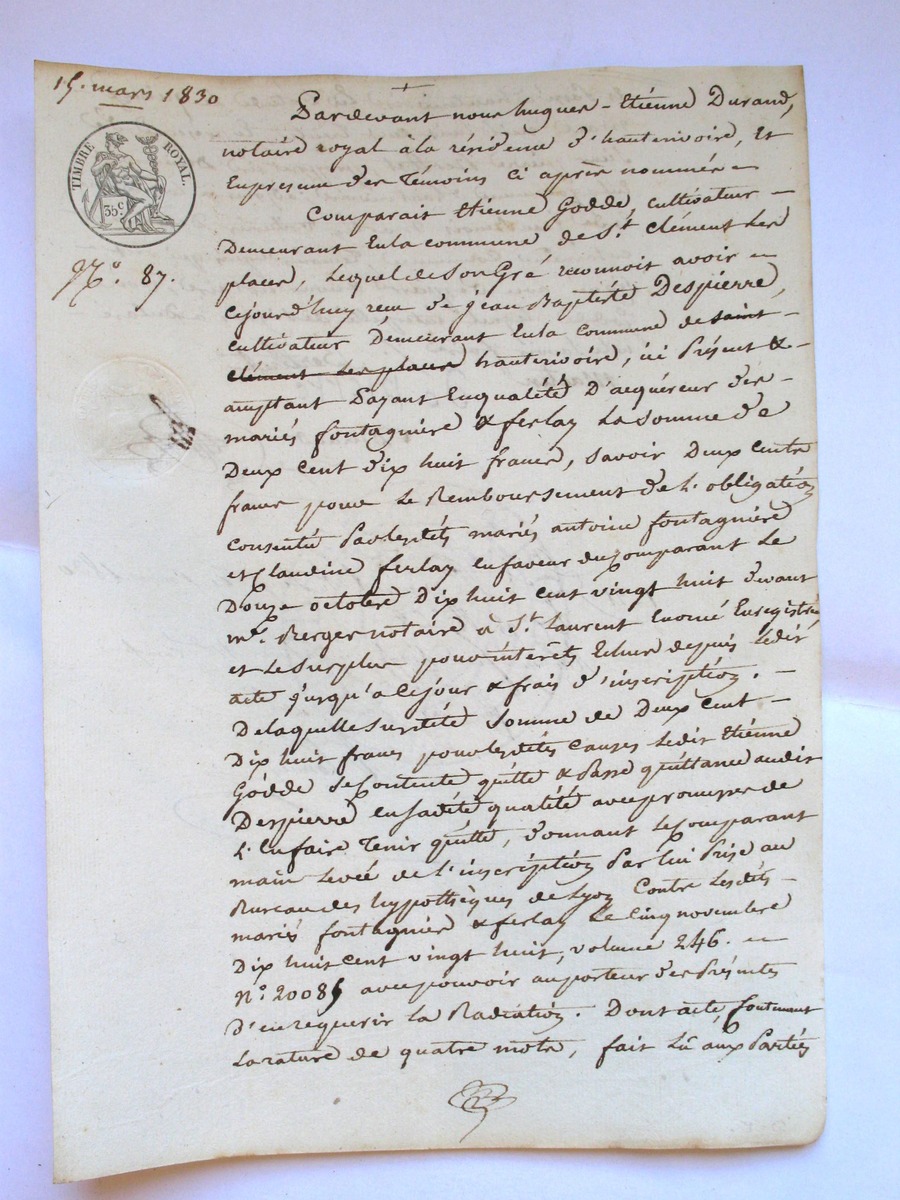 15. mars 1830
TIMBRE ROYAL.
35 c
N.º 87.
Pardevant nous hugues-Etiénne Durand,
notaire royal à la résidence d'hauterivoire, Et
En présence des Témoins ci après nommés
Comparait Etiénne Godde, cultivateur
Demeurant En la commune de S.t clément les
places, Lequel de Son Gré reconnoit avoir
cejourd'huy recu de jean Baptiste Despierre,
cultivateur Demeurant En la commune de saint
clément les places hauterivoire, ici Présent &
acceptant Payant En qualité D'acquéreur des
mariés fontagnière & ferlay La somme de
Deux cent dix huit francs, savoir Deux cents
francs pour Le Remboursement de L'obligation
consentie Par lesdits mariés antoine fontagnière
et Claudine ferlay En faveur du Comparant Le
Douze octobre Dix huit cent vingt huit devant
m.e Berger notaire à S.t Laurent Enregistré
et Le surplus pour intérêts Echus depuis Ledit
acte jusqu'a Cejour & frais d'inscription.
De laquelle Susdite Somme de Deux Cent
Dix huit francs pour lesdites Causes Ledit Etiénne
Godde Se Contente quitte & Passe quittance audit
Despierre En Sadite qualité avec promesse de
L'En faire Tenir quitte, donnant Le Comparant
main Levée de L'inscription Par Lui Prise au
Bureau des hypothèques de Lyon Contre Lesdits
mariés fontagnier & ferlay Le Cinq novembre
Dix huit cent vingt huit, volume 246.
N.º 20085 avec pouvoir au porteur des Présentes
D'en requerir La Radiation. Dont acte, Contenant
La rature de quatre mots, fait Lu aux Parties